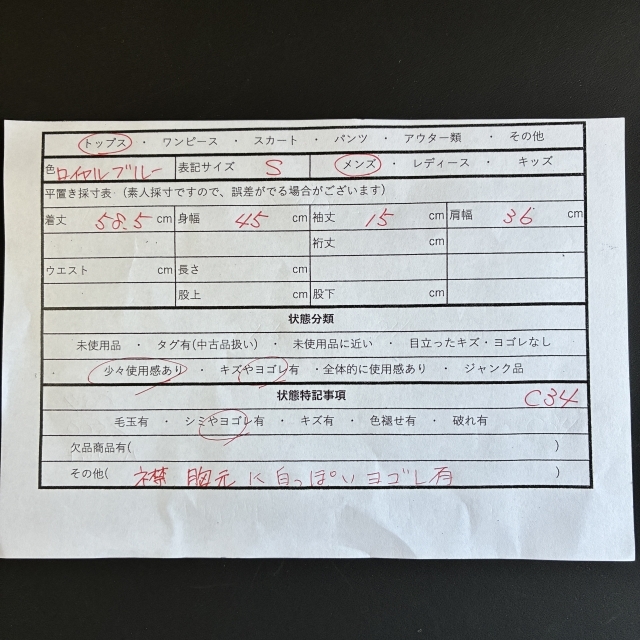 トップス ・ ワンピース ・ スカート ・ パンツ ・ アウター類 ・ その他
色 ロイヤルブルー 表記サイズ S メンズ ・ レディース ・ キッズ
平置き採寸表（素人採寸ですので、誤差がでる場合がございます）
着丈 58.5 cm 身幅 45 cm 袖丈 15 cm 肩幅 36 cm
裄丈 cm
ウエスト cm 長さ cm
股上 cm 股下 cm
状態分類
未使用品 ・ タグ有(中古品扱い) ・ 未使用品に近い ・ 目立ったキズ・ヨゴレなし
・ 少々使用感あり ・ キズやヨゴレ有 ・全体的に使用感あり ・ ジャンク品
状態特記事項 C34
毛玉有 ・ シミやヨゴレ有 ・ キズ有 ・ 色褪せ有 ・ 破れ有
欠品商品有( )
その他( 襟 胸元に白っぽいヨゴレ有 )